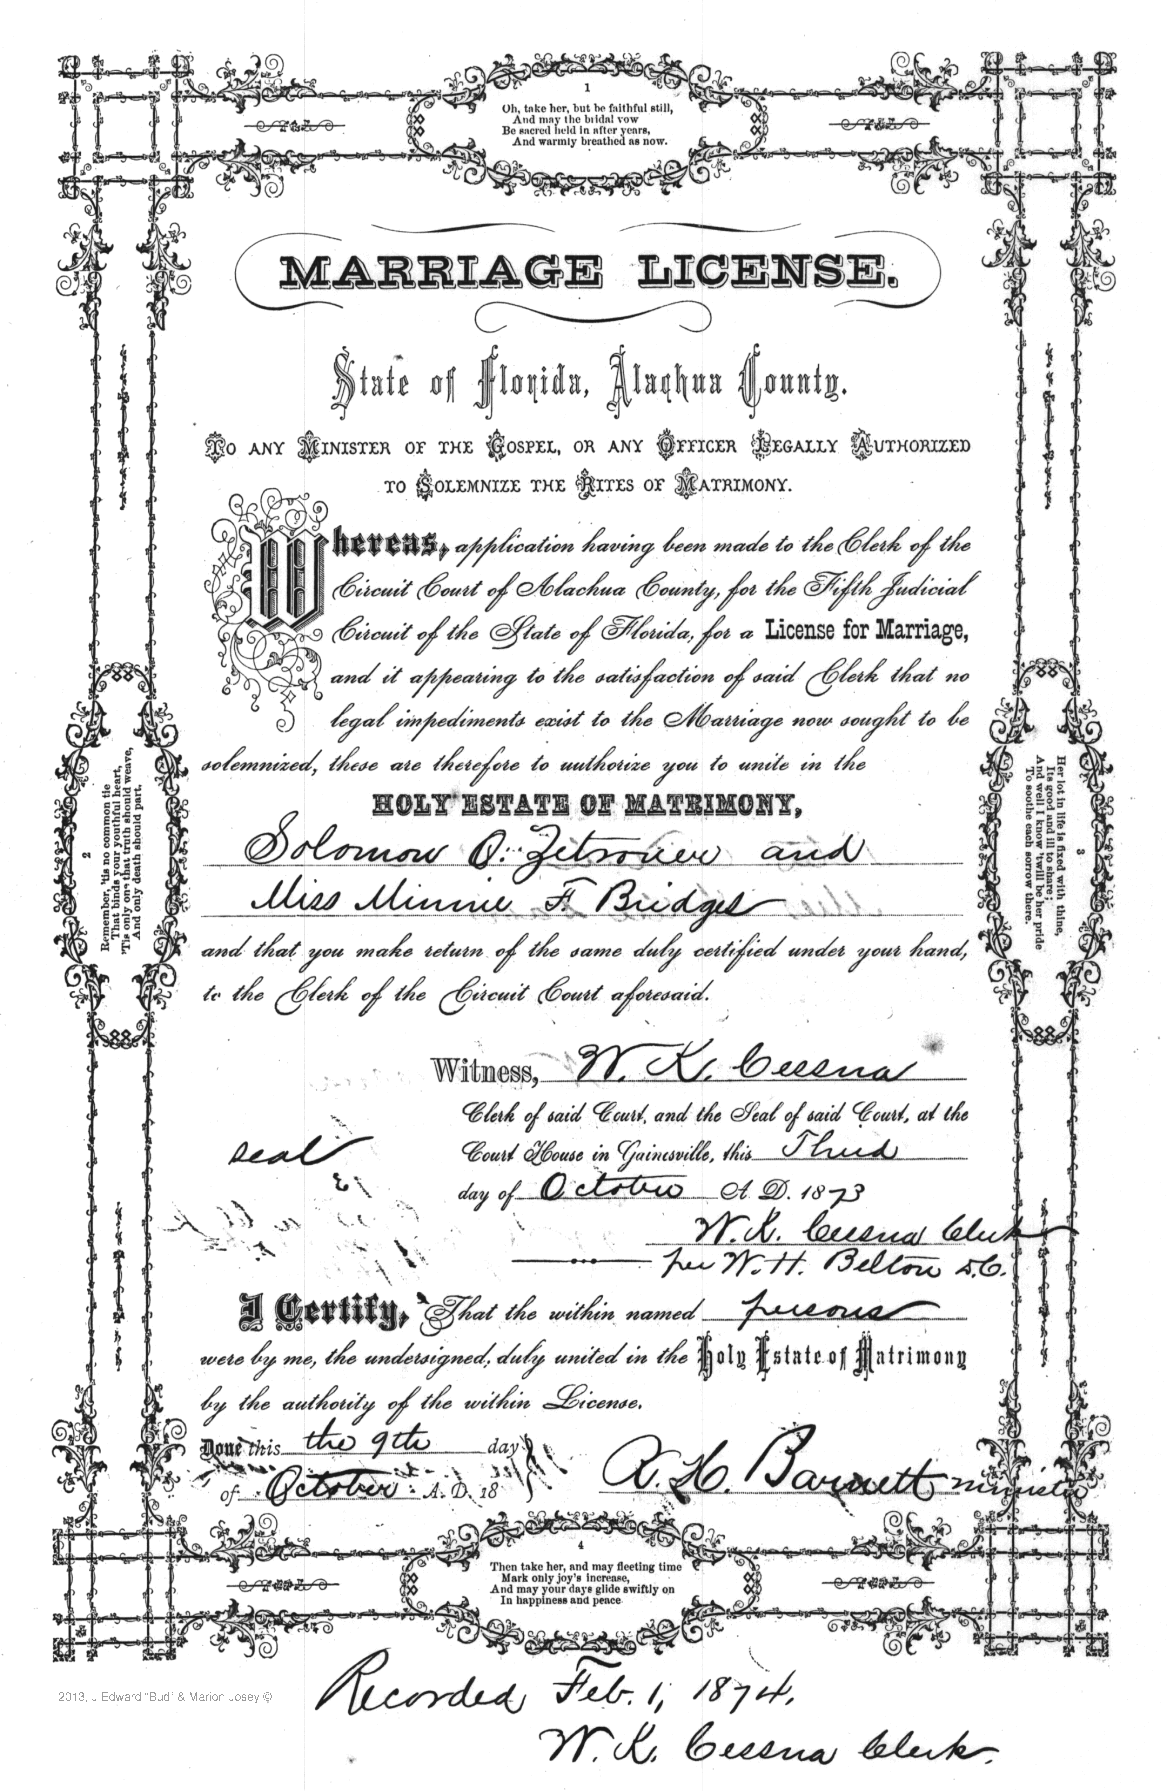 1
Oh, take her, but be faithful still,
And may the bridal vow
Be sacred held in after years,
And warmly breathed as now.
MARRIAGE LICENSE.
State of Florida, Alachua County.
TO ANY MINISTER OF THE GOSPEL, OR ANY OFFICER LEGALLY AUTHORIZED
TO SOLEMNIZE THE RITES OF MATRIMONY.
Whereas, application having been made to the Clerk of the
Circuit Court of Alachua County, for the Fifth Judicial
Circuit of the State of Florida, for a License for Marriage,
and it appearing to the satisfaction of said Clerk that no
legal impediments exist to the Marriage now sought to be
solemnized, these are therefore to authorize you to unite in the
HOLY ESTATE OF MATRIMONY,
Solomon O. Zetrouer and
Miss Minnie F. Bridges
and that you make return of the same duly certified under your hand,
to the Clerk of the Circuit Court aforesaid.
2
Remember, 'tis no common tie
That binds your youthful heart,
'Tis only one that truth should weave,
And only death should part.
3
Her lot in life is fixed with thine,
Its good and ill to share;
And well I know 'twill be her pride
To soothe each sorrow there.
Witness, W. K. Cessna
Clerk of said Court, and the Seal of said Court, at the
seal
Court House in Gainesville, this Third
day of October A. D. 1873
W. K. Cessna Clerk
per W. H. Belton D.C.
I Certify, That the within named persons
were by me, the undersigned, duly united in the Holy Estate of Matrimony
by the authority of the within License.
Done this the 9th day
of October A. D. 18
H. Barnett, minister
4
Then take her, and may fleeting time
Mark only joy's increase,
And may your days glide swiftly on
In happiness and peace
2013, J. Edward "Bud" & Marion Josey ©
Recorded Feb. 1, 1874.
W. K. Cessna Clerk.